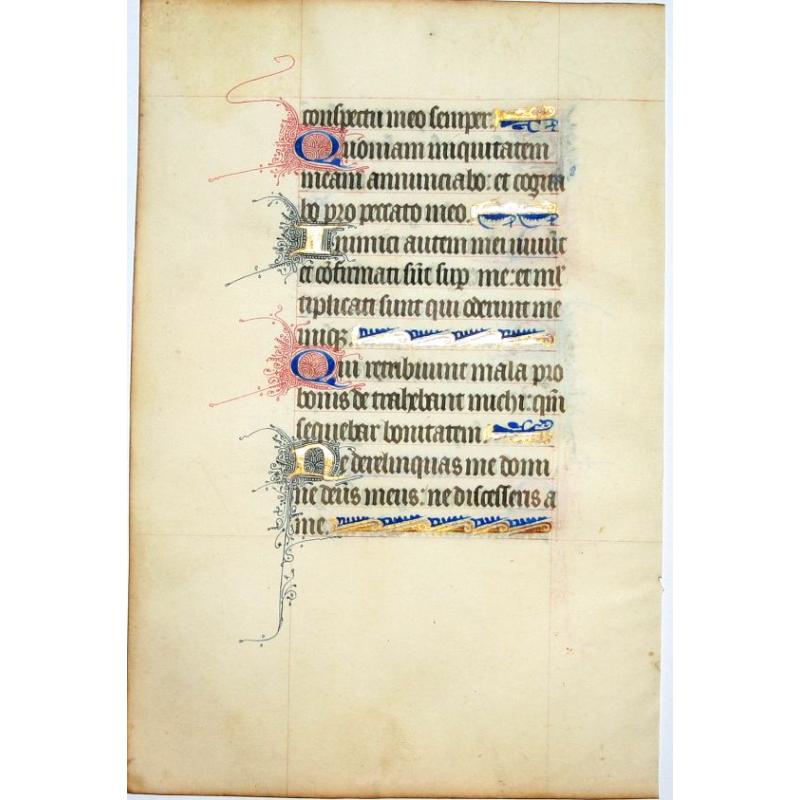 conspectu meo semper.
Quoniam iniquitatem
meam annunciabo: et cogita
bo pro peccato meo.
Inimici autem mei uiuūt
et cōfirmati sūt sup me: et ml̄
tiplicati sunt qui oderunt me
iniq̄.
Qui retribuunt mala pro
bonis detrahebant michi: qm̄
sequebar bonitatem.
Ne derelinquas me domi
ne deus meus: ne discesseris a
me.